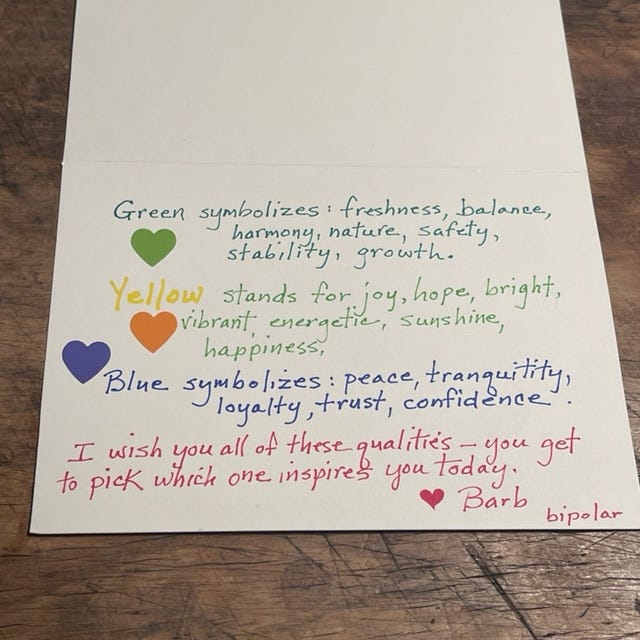 Green symbolizes: freshness, balance,
harmony, nature, safety,
stability, growth.
Yellow stands for joy, hope, bright,
vibrant, energetic, sunshine,
happiness,
Blue symbolizes: peace, tranquitity,
loyalty, trust, confidence.
I wish you all of these qualities - you get
to pick which one inspires you today.
Barb
bipolar